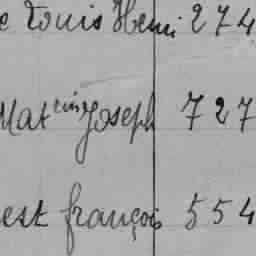 e Louis Henri 274
Mat^cin Joseph 727
est françois 554